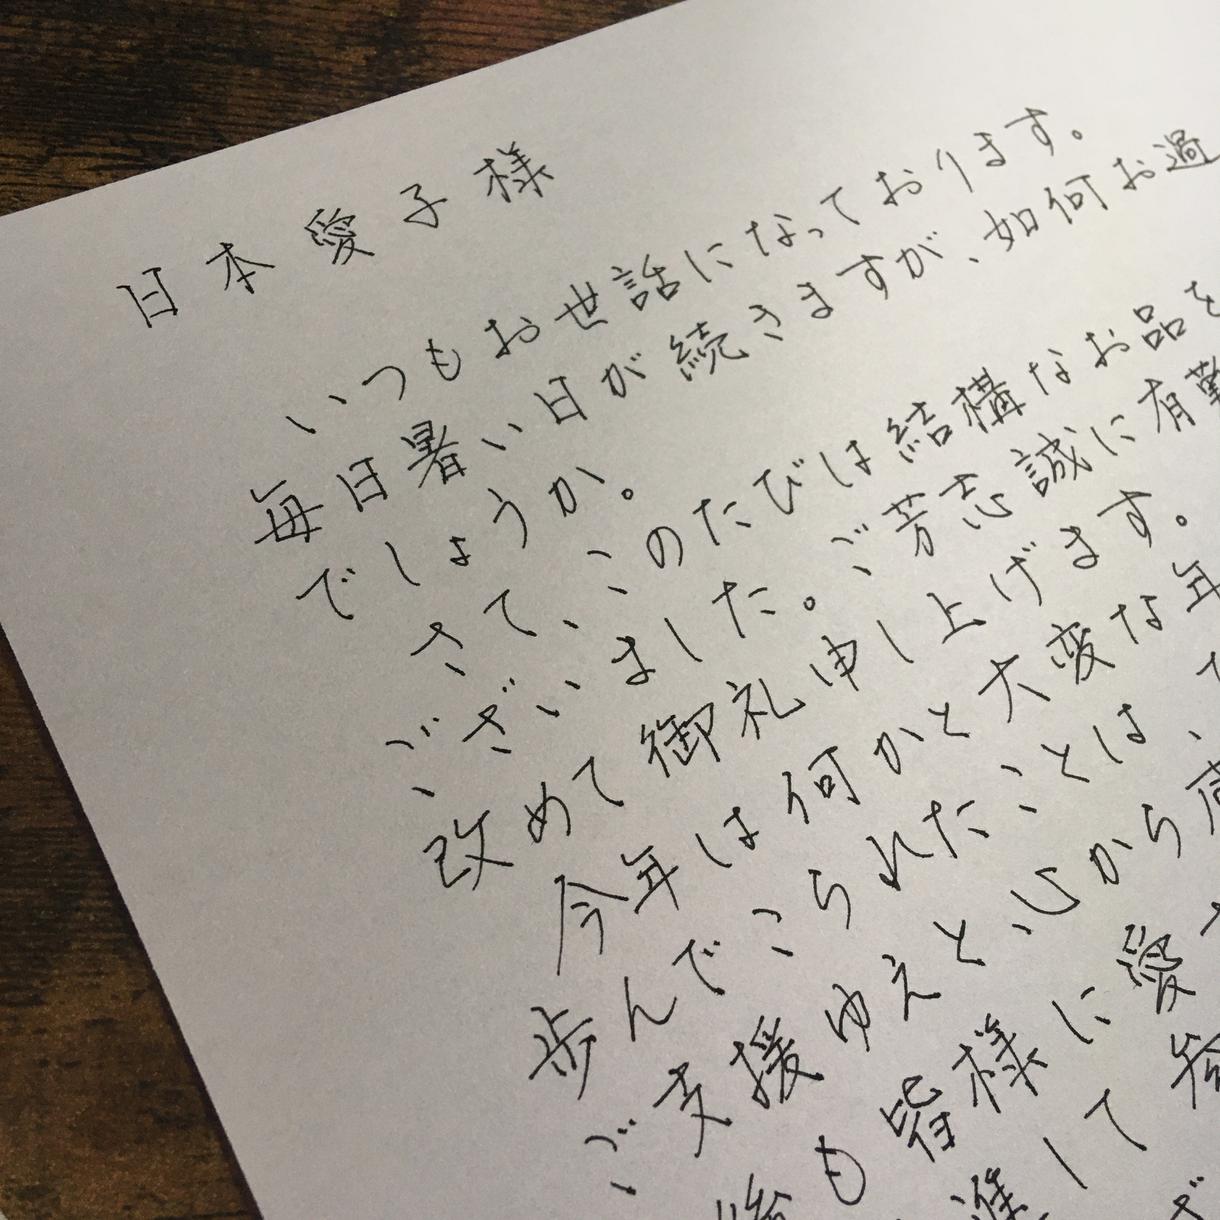 日本愛子様
いつもお世話になっております。
毎日暑い日が続きますが、如何お過
でしょうか。
さて、このたびは結構なお品を
ございました。ご芳志誠に有難
改めて御礼申し上げます。
今年は何かと大変な年
歩んでこられたことは、
ご支援ゆえと心から感
後も皆様に愛
進して